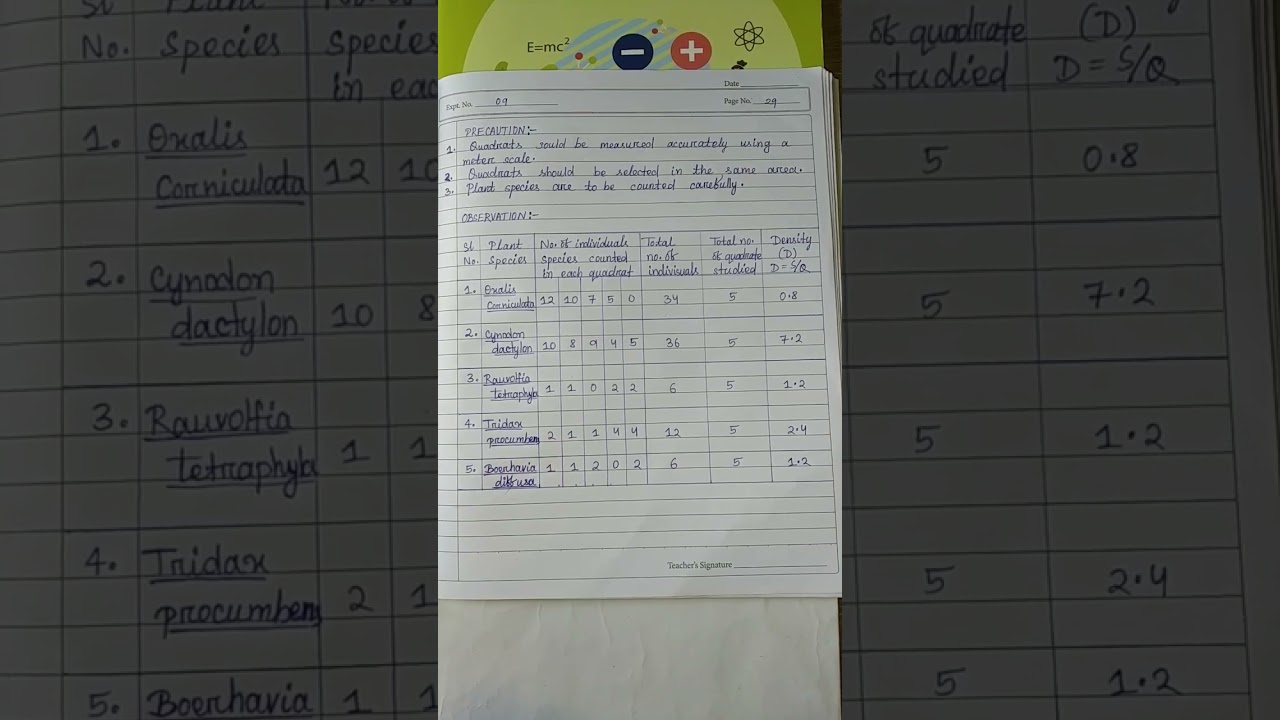 E=mc²
Date
Expt. No. 09
Page No. 29
PRECAUTION:-
1. Quadrats sould be measured accurately using a
meter scale.
2. Quadrats should be selected in the same area.
3. Plant species are to be counted carefully.
OBSERVATION:-
Sl Plant No. of individuals Total Total no. Density
No. Species Species counted no. of of quadrate (D)
in each quadrat indivisuals studied D = S/Q
1. Oxalis
Corniculata 12 10 7 5 0 34 5 0.8
2. Cynodon
dactylon 10 8 9 4 5 36 5 7.2
3. Rauvolfia
tetraphyla 1 1 0 2 2 6 5 1.2
4. Tridax
procumbens 2 1 1 4 4 12 5 2.4
5. Boerhavia 1 1 2 0 2 6 5 1.2
diffusa
Teacher's Signature